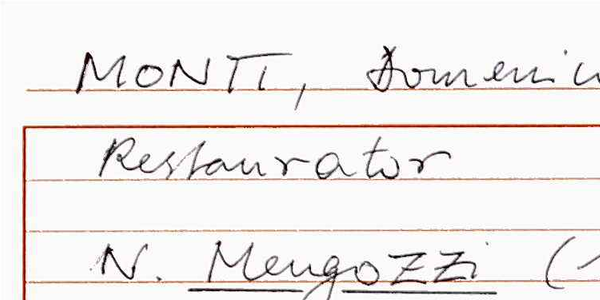 MONTI, Domenic
Restaurator
N. Mengozzi (